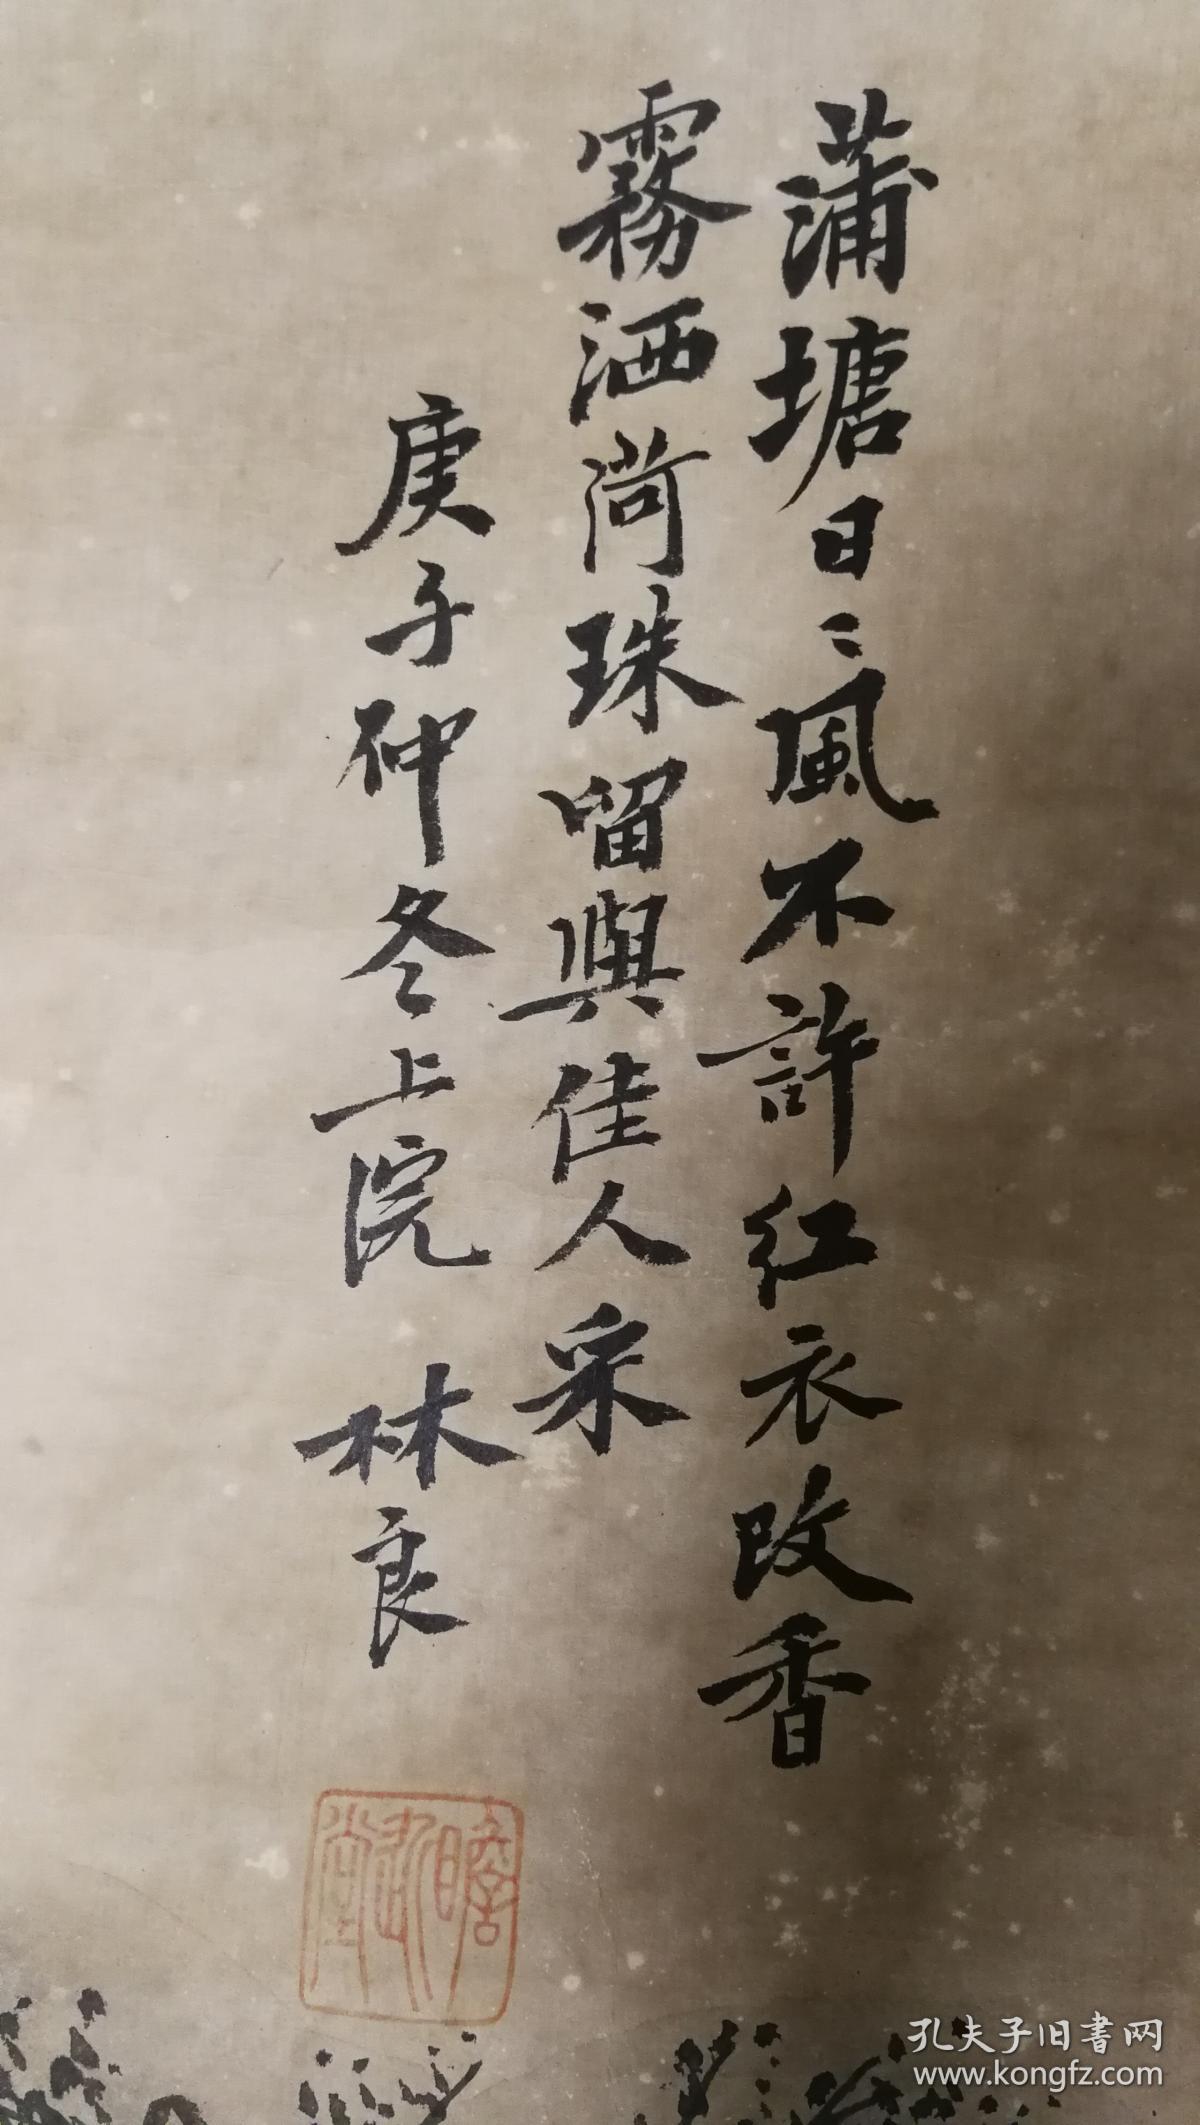 蒲塘日〻風不許红衣改香
霧洒荷珠留與佳人采
庚子仲冬上浣 林良
孔夫子旧書网
www.kongfz.com